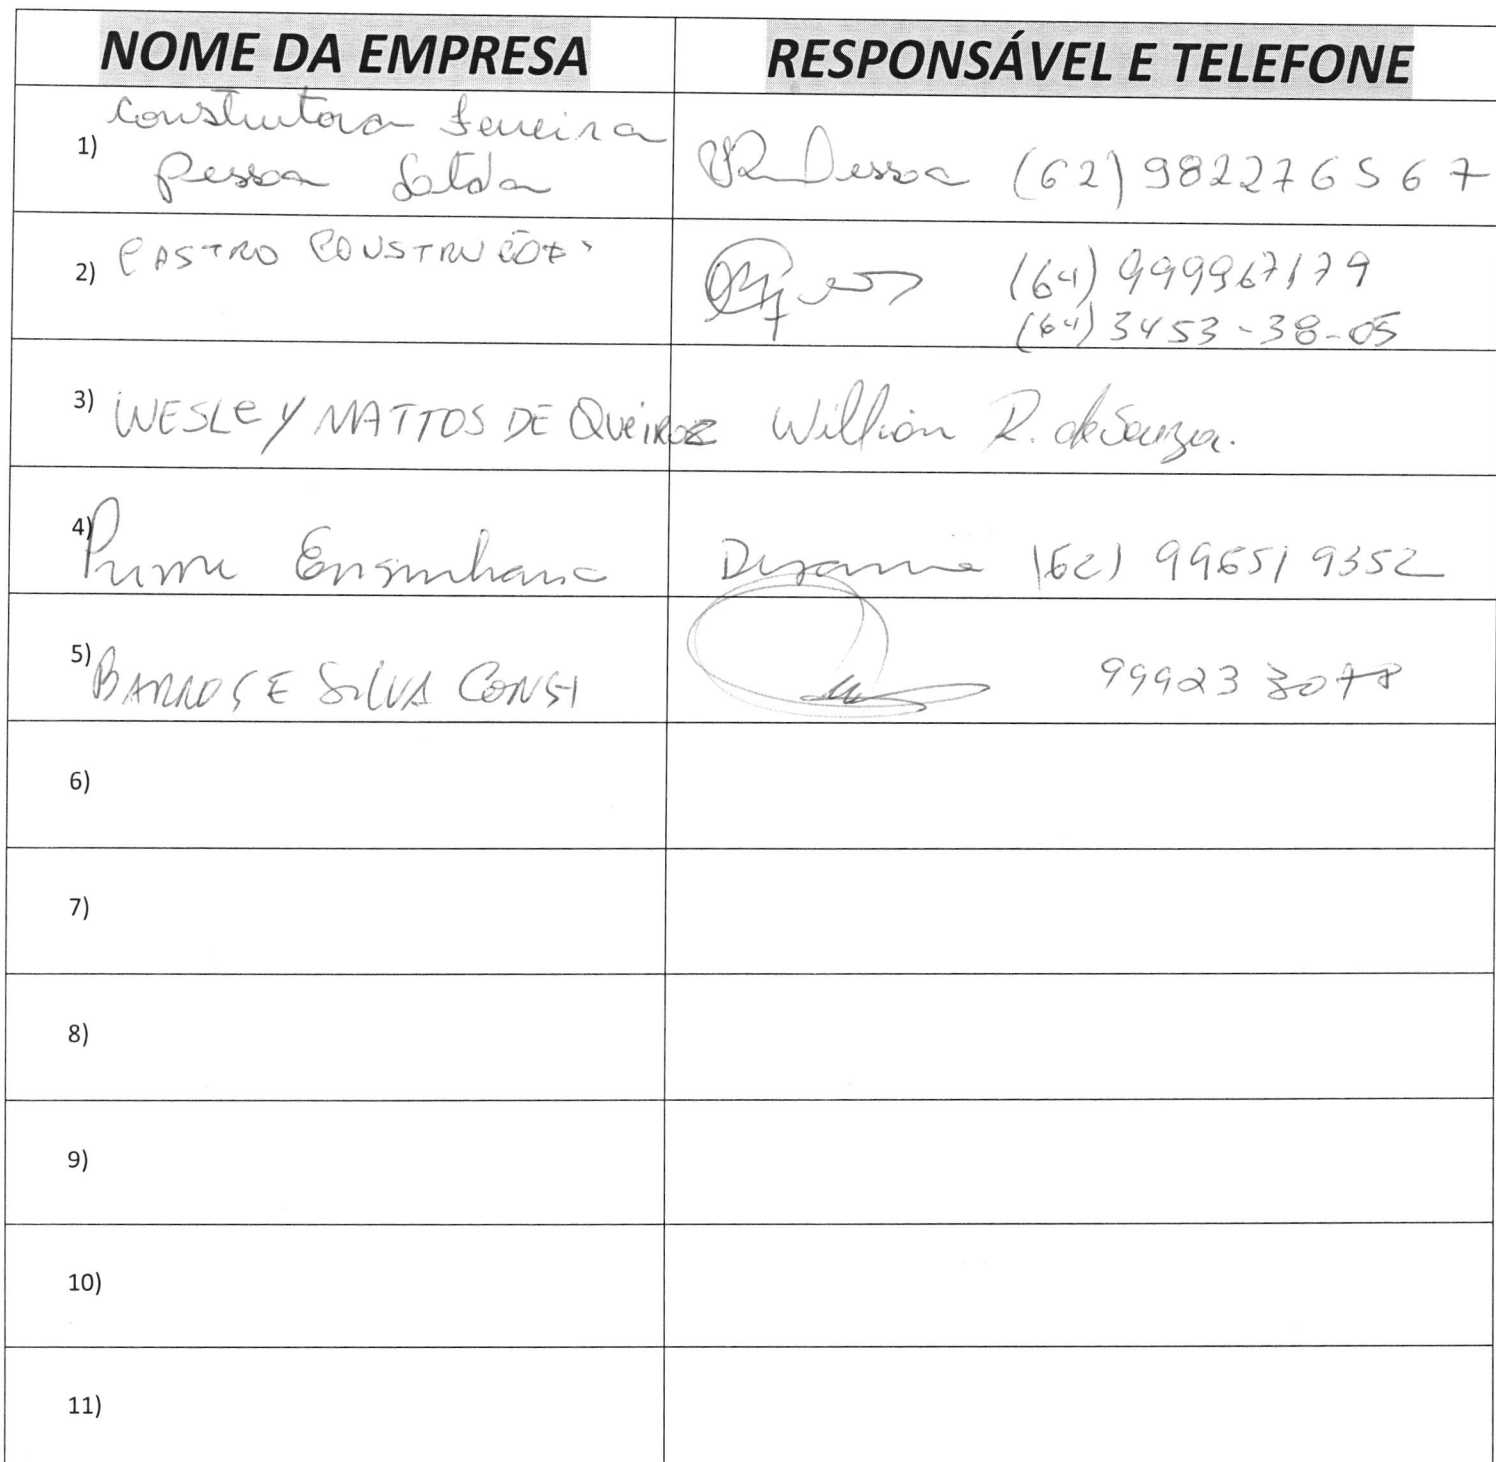 NOME DA EMPRESA
RESPONSÁVEL E TELEFONE
1) Construtora Ferreira
Pessoa
Pessoa (62) 982276567
2) CASTRO CONSTRUÇÕES
(64) 999967179
(64) 3453-38-05
3) WESLEY MATTOS DE QUEIROZ
Willian R. de Souza.
4) Prime Engenharia
(62) 99651 9352
5) BARROS E SILVA CONST
99923 3078
6)
7)
8)
9)
10)
11)